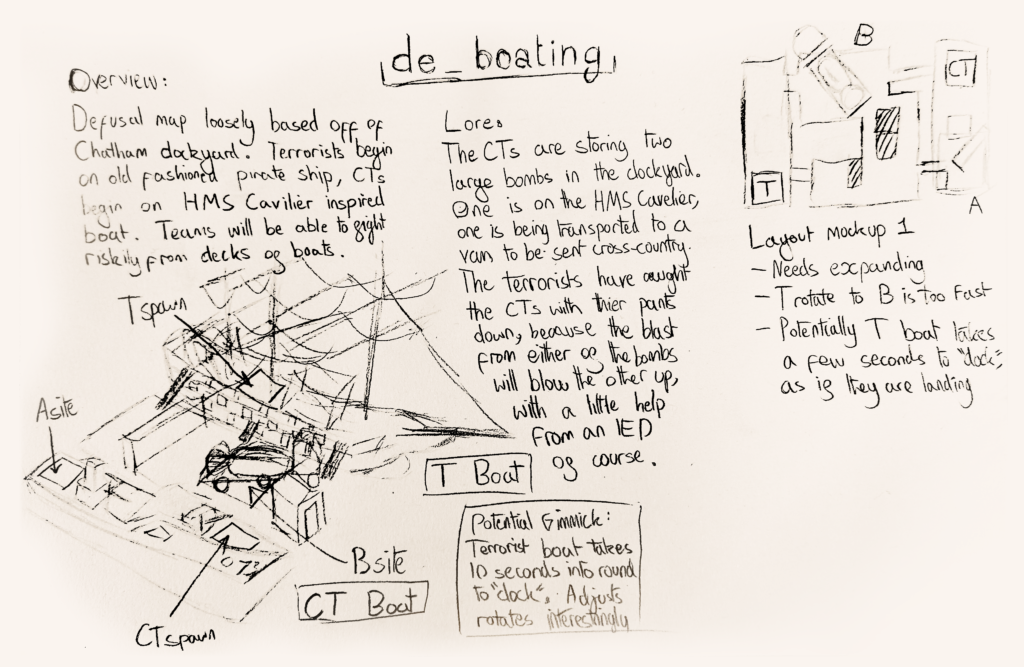 de_boating
Overview:
Defusal map loosely based off of
Chatham dockyard. Terrorists begin
on old fashioned pirate ship, CTs
begin on HMS Cavilier inspired
boat. Teams will be able to fight
riskily from decks of boats.
T spawn
A site
B site
CT Boat
CT spawn
T Boat
073
Lore:
The CTs are storing two
large bombs in the dockyard.
One is on the HMS Cavelier,
one is being transported to a
van to be sent cross-country.
The terrorists have caught
the CTs with thier pants
down, because the blast
from either of the bombs
will blow the other up,
with a little help
from an IED
of course.
Potential Gimmick:
Terrorist boat takes
10 seconds into round
to "dock". Adjusts
rotates interestingly
B
CT
T
A
Layout mockup 1
- Needs expanding
- T rotate to B is too fast
- Potentially T boat takes
a few seconds to "dock",
as if they are landing